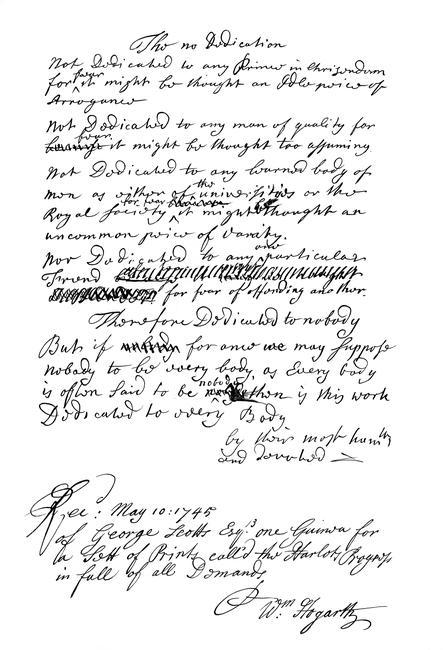 The no Dedication
Not Dedicated to any Prince in Christendom
for fear it might be thought an Idle peice of
Arrogance
Not Dedicated to any man of quality for
fear it might be thought too assuming
Not Dedicated to any learned body of
men as either of the universities or the
Royal Society for fear it might be thought an
uncommon peice of Vanity.
Nor Dedicated to any one particular
Freind
for fear of offending another.
Therefore Dedicated to nobody
But if for once we may suppose
nobody to be every body, as Every body
is often said to be nobody then is this work
Dedicated to every Body
by their most humble
and devoted
Rec: May 10: 1745
of George Scotts Esqr. one Guinea for
a Sett of Prints call'd the Harlots Progress
in full of all Demands.
Wm. Hogarth